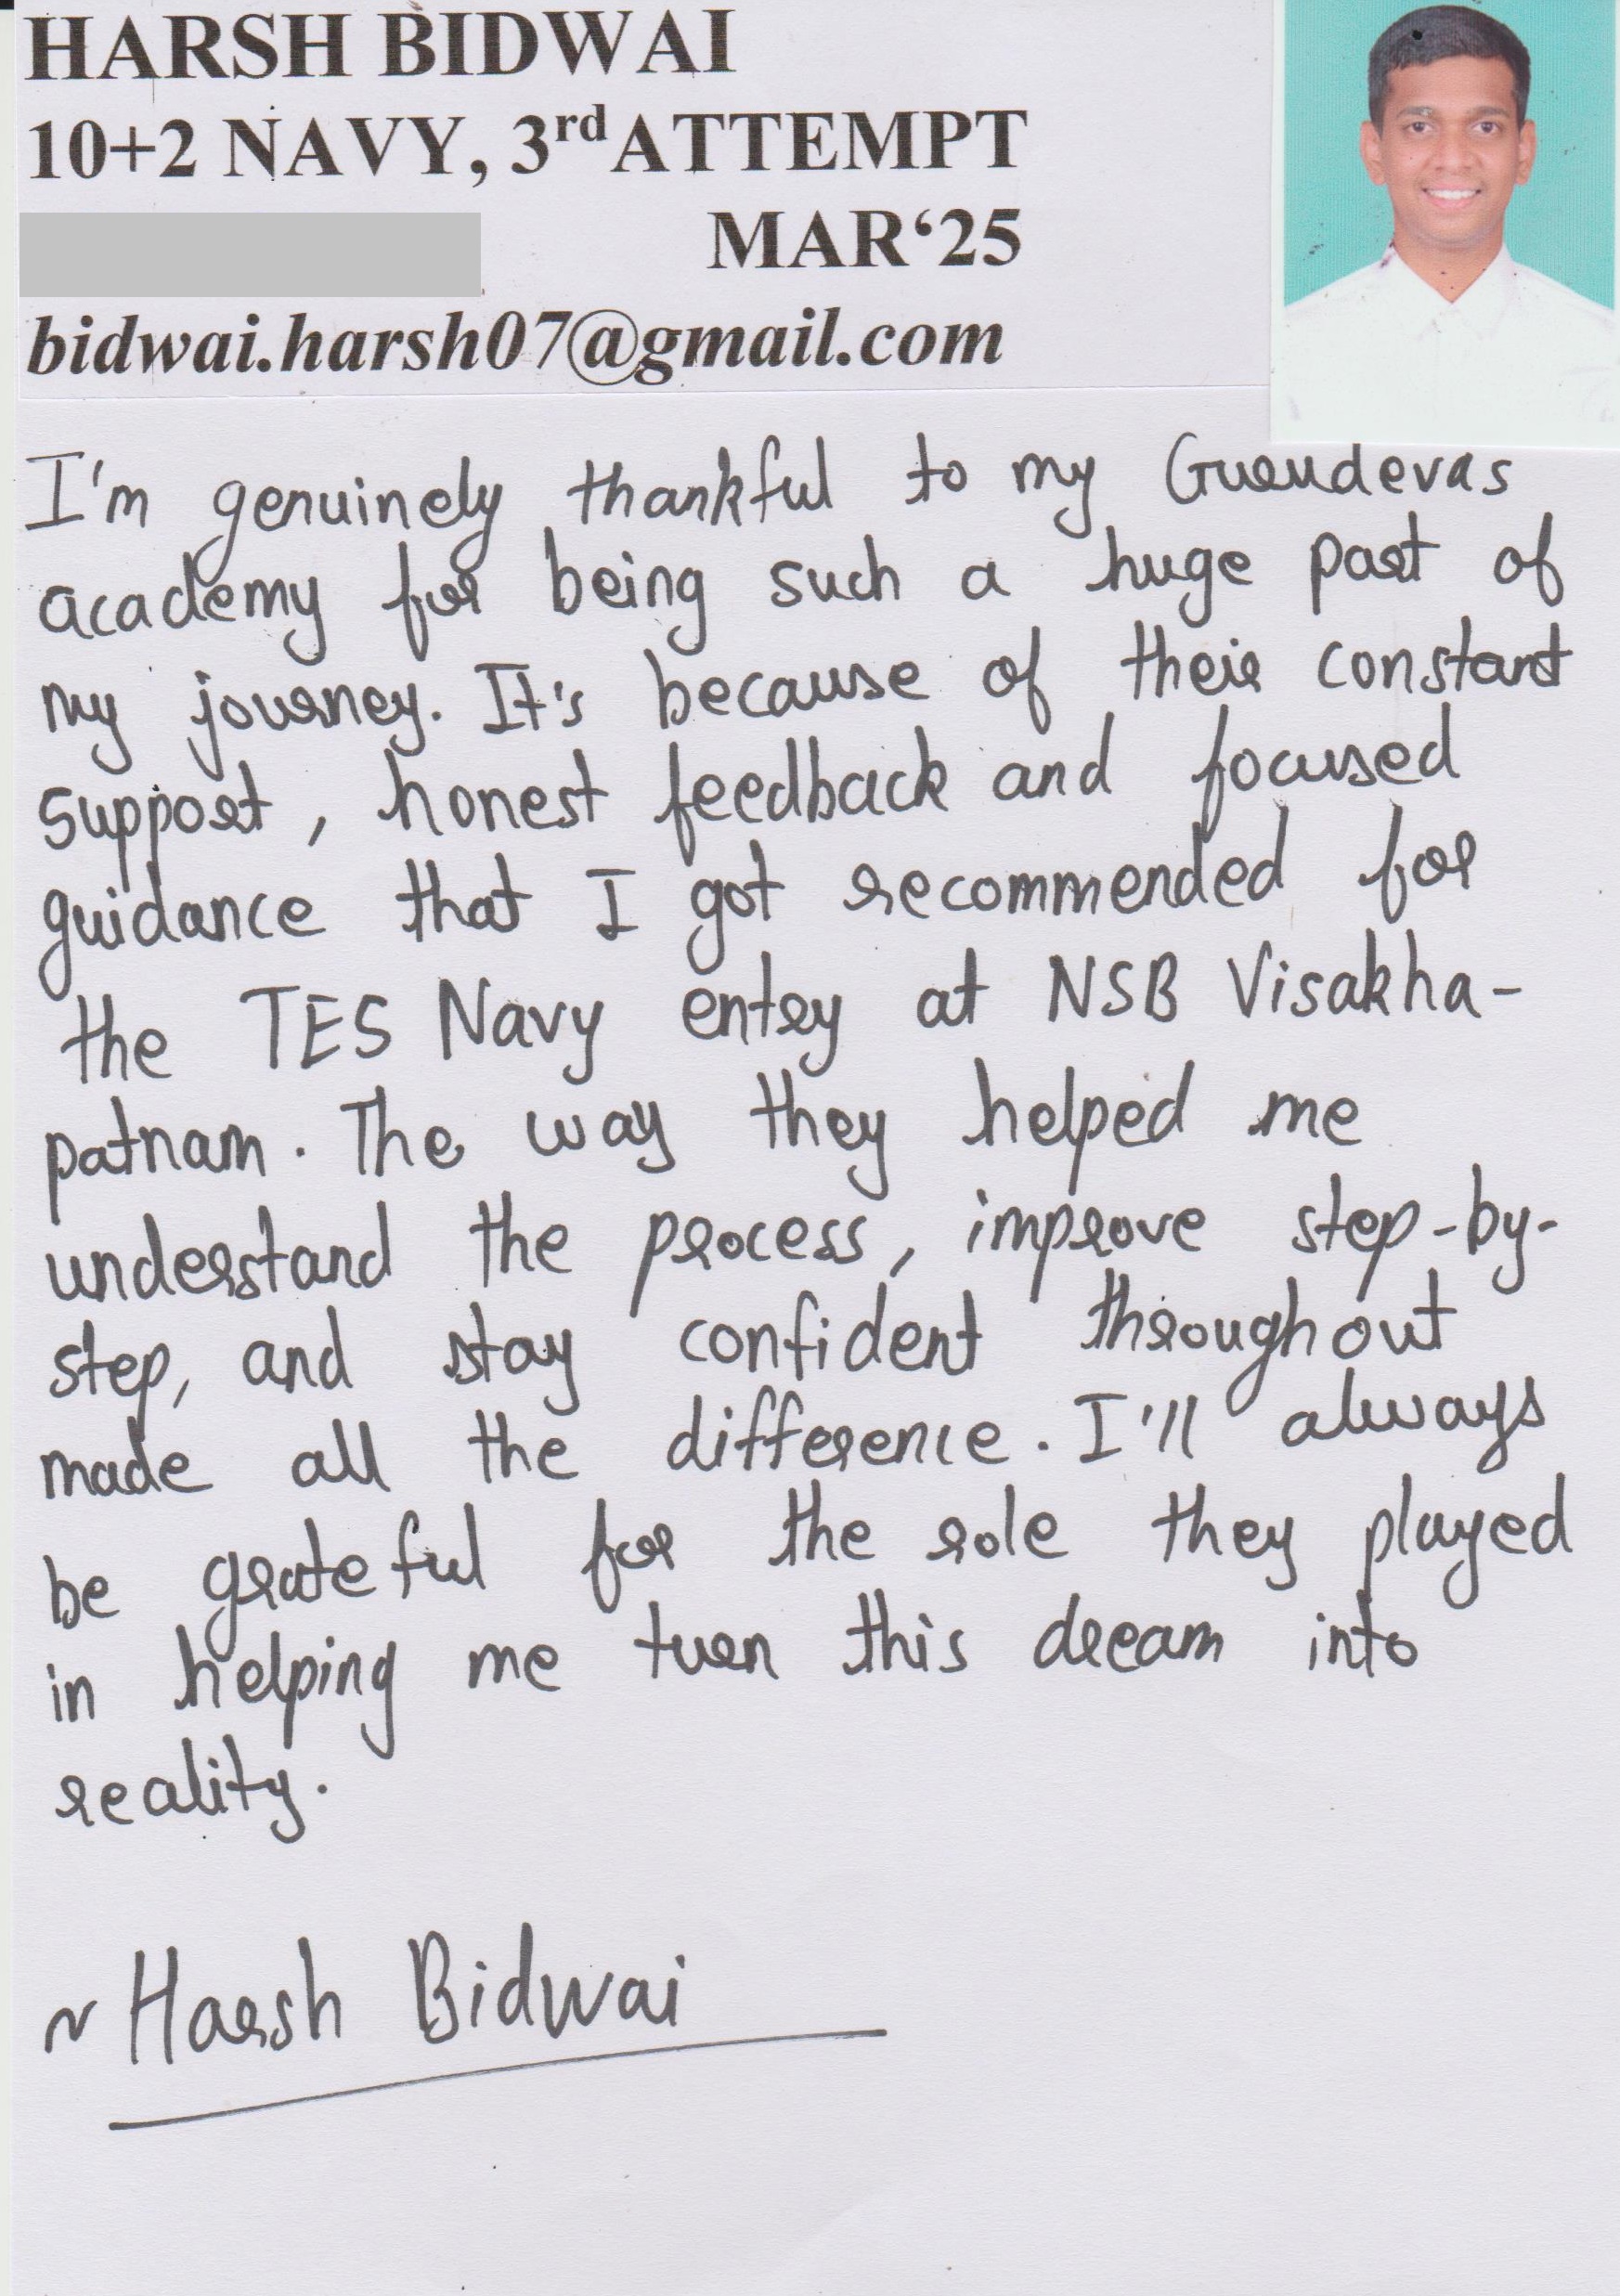 HARSH BIDWAI
10+2 NAVY, 3rd ATTEMPT
MAR‘25
bidwai.harsh07@gmail.com
I'm genuinely thankful to my Gurudevas
academy for being such a huge part of
my journey. It's because of their constant
support, honest feedback and focused
guidance that I got recommended for
the TES Navy entry at NSB Visakha-
patnam. The way they helped me
understand the process, improve step-by-
step, and stay confident throughout
made all the difference. I'll always
be grateful for the role they played
in helping me turn this dream into
reality.
~ Harsh Bidwai